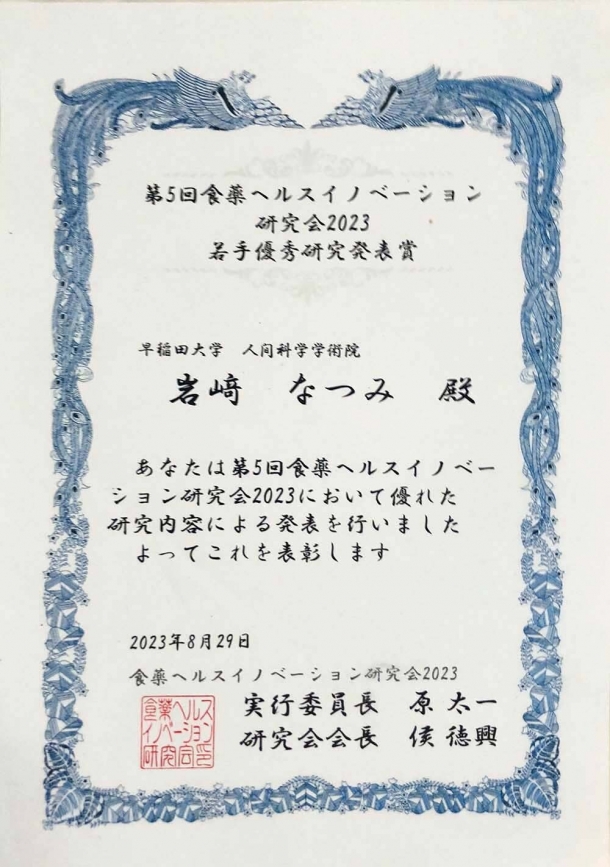 第5回食薬ヘルスイノベーション
研究会2023
若手優秀研究発表賞
早稲田大学　人间科学学術院
岩﨑　なつみ　殿
あなたは第5回食薬ヘルスイノベー
ション研究会2023において優れた
研究内容による発表を行いました
よってこれを表彰します
2023年8月29日
食薬ヘルスイノベーション研究会2023
実行委員長　原　太一
研究会会長　侯　徳興
食薬ヘルス
イノベーション
研究会印